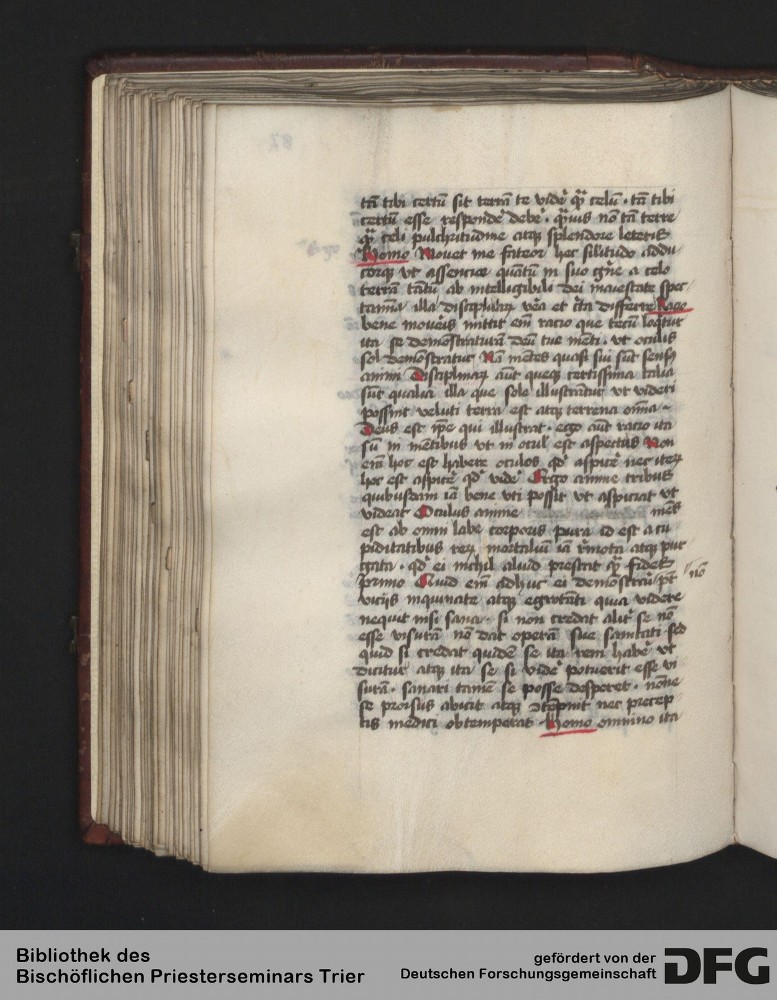 tā tibi certū sit terrā te videꝰ qͣꝫ celū . tā tibi
certū esse respondeꝰ debeꝰ . qͣuis nō tā terre
qͣꝫ celi pulchritudine atqꝫ splendore leteris
Homo Mouet me fateor hec silitudo addu
corqꝫ vt assenciar quātū in suo gn̄e a celo
terrā tātū ab intelligibili dei maiestate spec
tamīa illa disciplinaꝝ v̄a et c̄ta differre Racio
bene moueris mittit em̄ racio que tecū loqͥtur
ita se demōstraturā deū tue mēti . vt oculis
sol demōstratur Nā mētes quasi sui sūt sensꝯ
animi Disciplinaꝝ aūt queqꝫ certissima talia
sūt qualia illa que sole illustrātur vt videri
possint veluti terra est atqꝫ terrena om̄ia
Deus est ip̄e qui illustrat . ego aūt racio ita
sū in mētibus vt in ocul̄ est aspectus Non
em̄ hoc est habere oculos qd̓ aspiceꝰ nec iteꝝ
hoc est aspiceꝰ qd̓ videꝰ Ergo anime tribus
quibusdam iā bene vti possit vt aspiciat vt
videat Oculus anime mēs
est ab omni labe corporis pura id est a cu
piditatibus reꝝ mortaliū iā r̄mota atqꝫ pur
gata . qd̓ ei nichil aliud prestat qͣꝫ fides
primo Quid em̄ adhuc ei demōstrari p̄t
nō
viciis inquinate atqꝫ egrotāti quia videre
nequit nisi sana . si non credat alit̓ se nō
esse visurā nō dat operā sue sanitati sed
quid si credat quidē se ita rem habeꝰ vt
dicitur atqꝫ ita se si videꝰ potuerit esse vi
surā . sanari tamē se posse desperet . nōne
se prorsus abicit atqꝫ ꝯtēpnit nec precep
tis medici obtemperat Homo omnino ita
Bibliothek des
Bischöflichen Priesterseminars Trier
gefördert von der
Deutschen Forschungsgemeinschaft
DFG